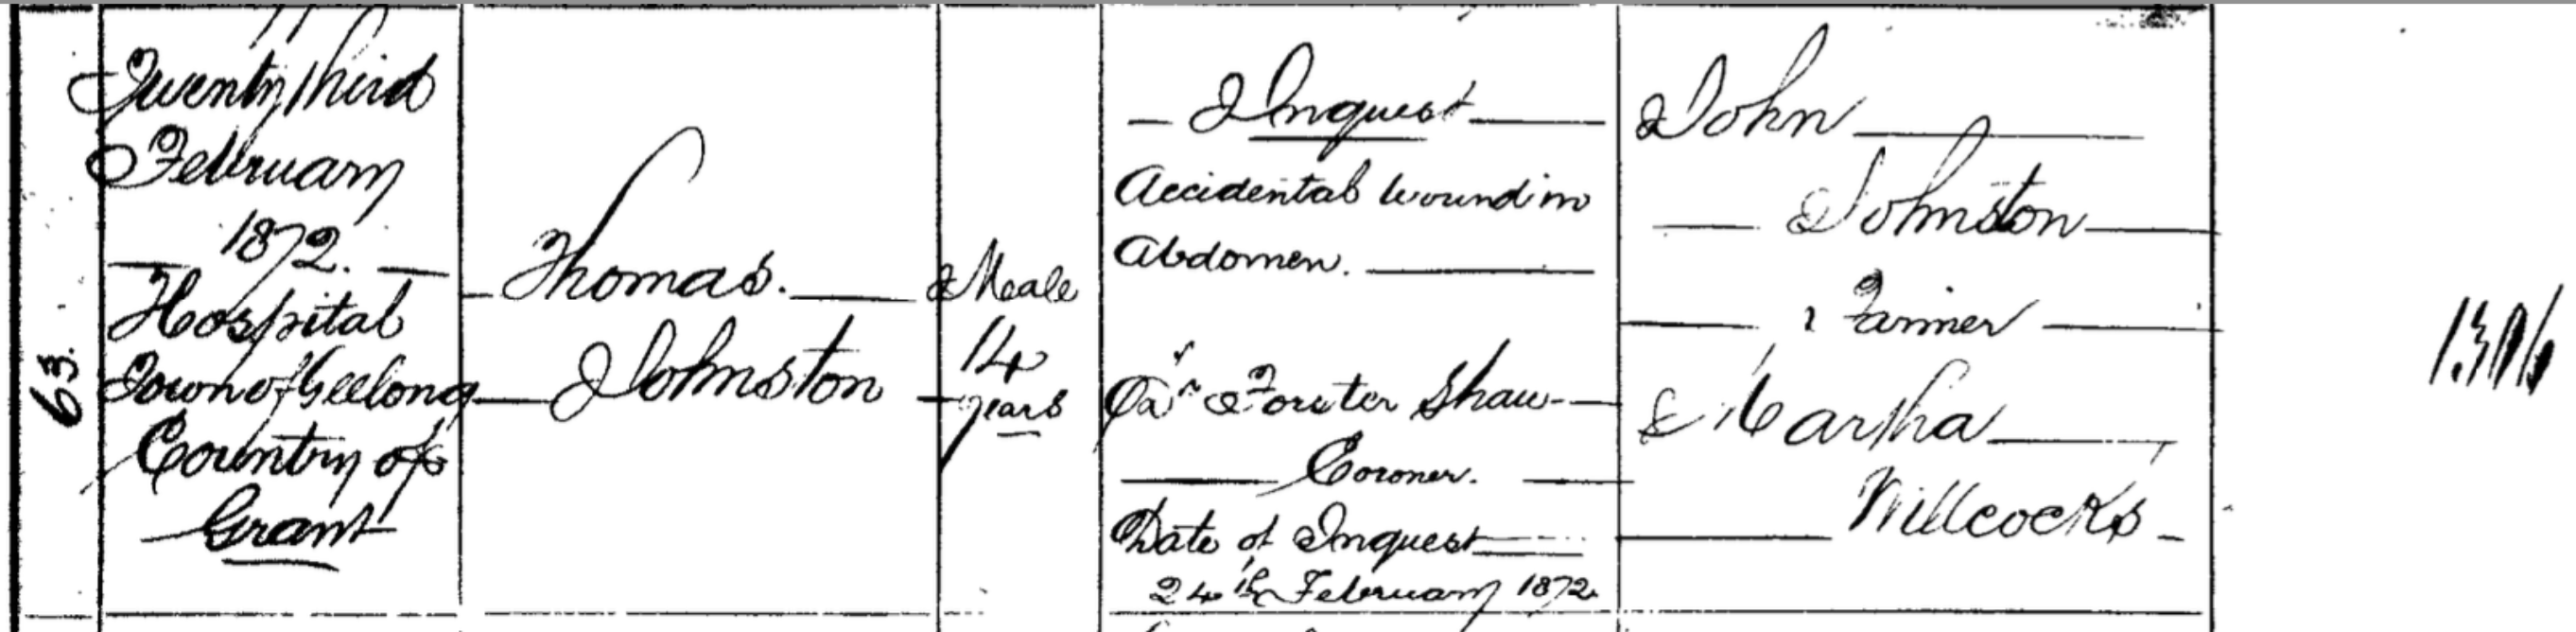 63.
Twenty third
February
1872.
Hospital
Town of Geelong
Country of
Grant
Thomas.
Johnston
Male
14
years
Inquest
Accidental wound in
Abdomen.
Forster Shaw
Coroner.
Date of Inquest
24th February 1872
John
Johnston
Farmer
Martha
Willcocks